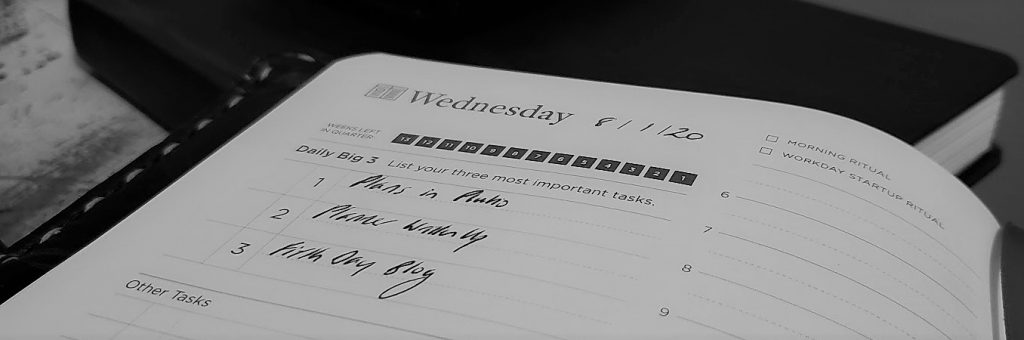 Wednesday 8/1/20
WEEKS LEFT
IN QUARTER:
13 12 11 10 9 8 7 6 5 4 3 2 1
Daily Big 3 List your three most important tasks.
1 Plans in
2 Planner Write Up
3 Birth Day Blog
Other Tasks
MORNING RITUAL
WORKDAY STARTUP RITUAL
6
7
8
9